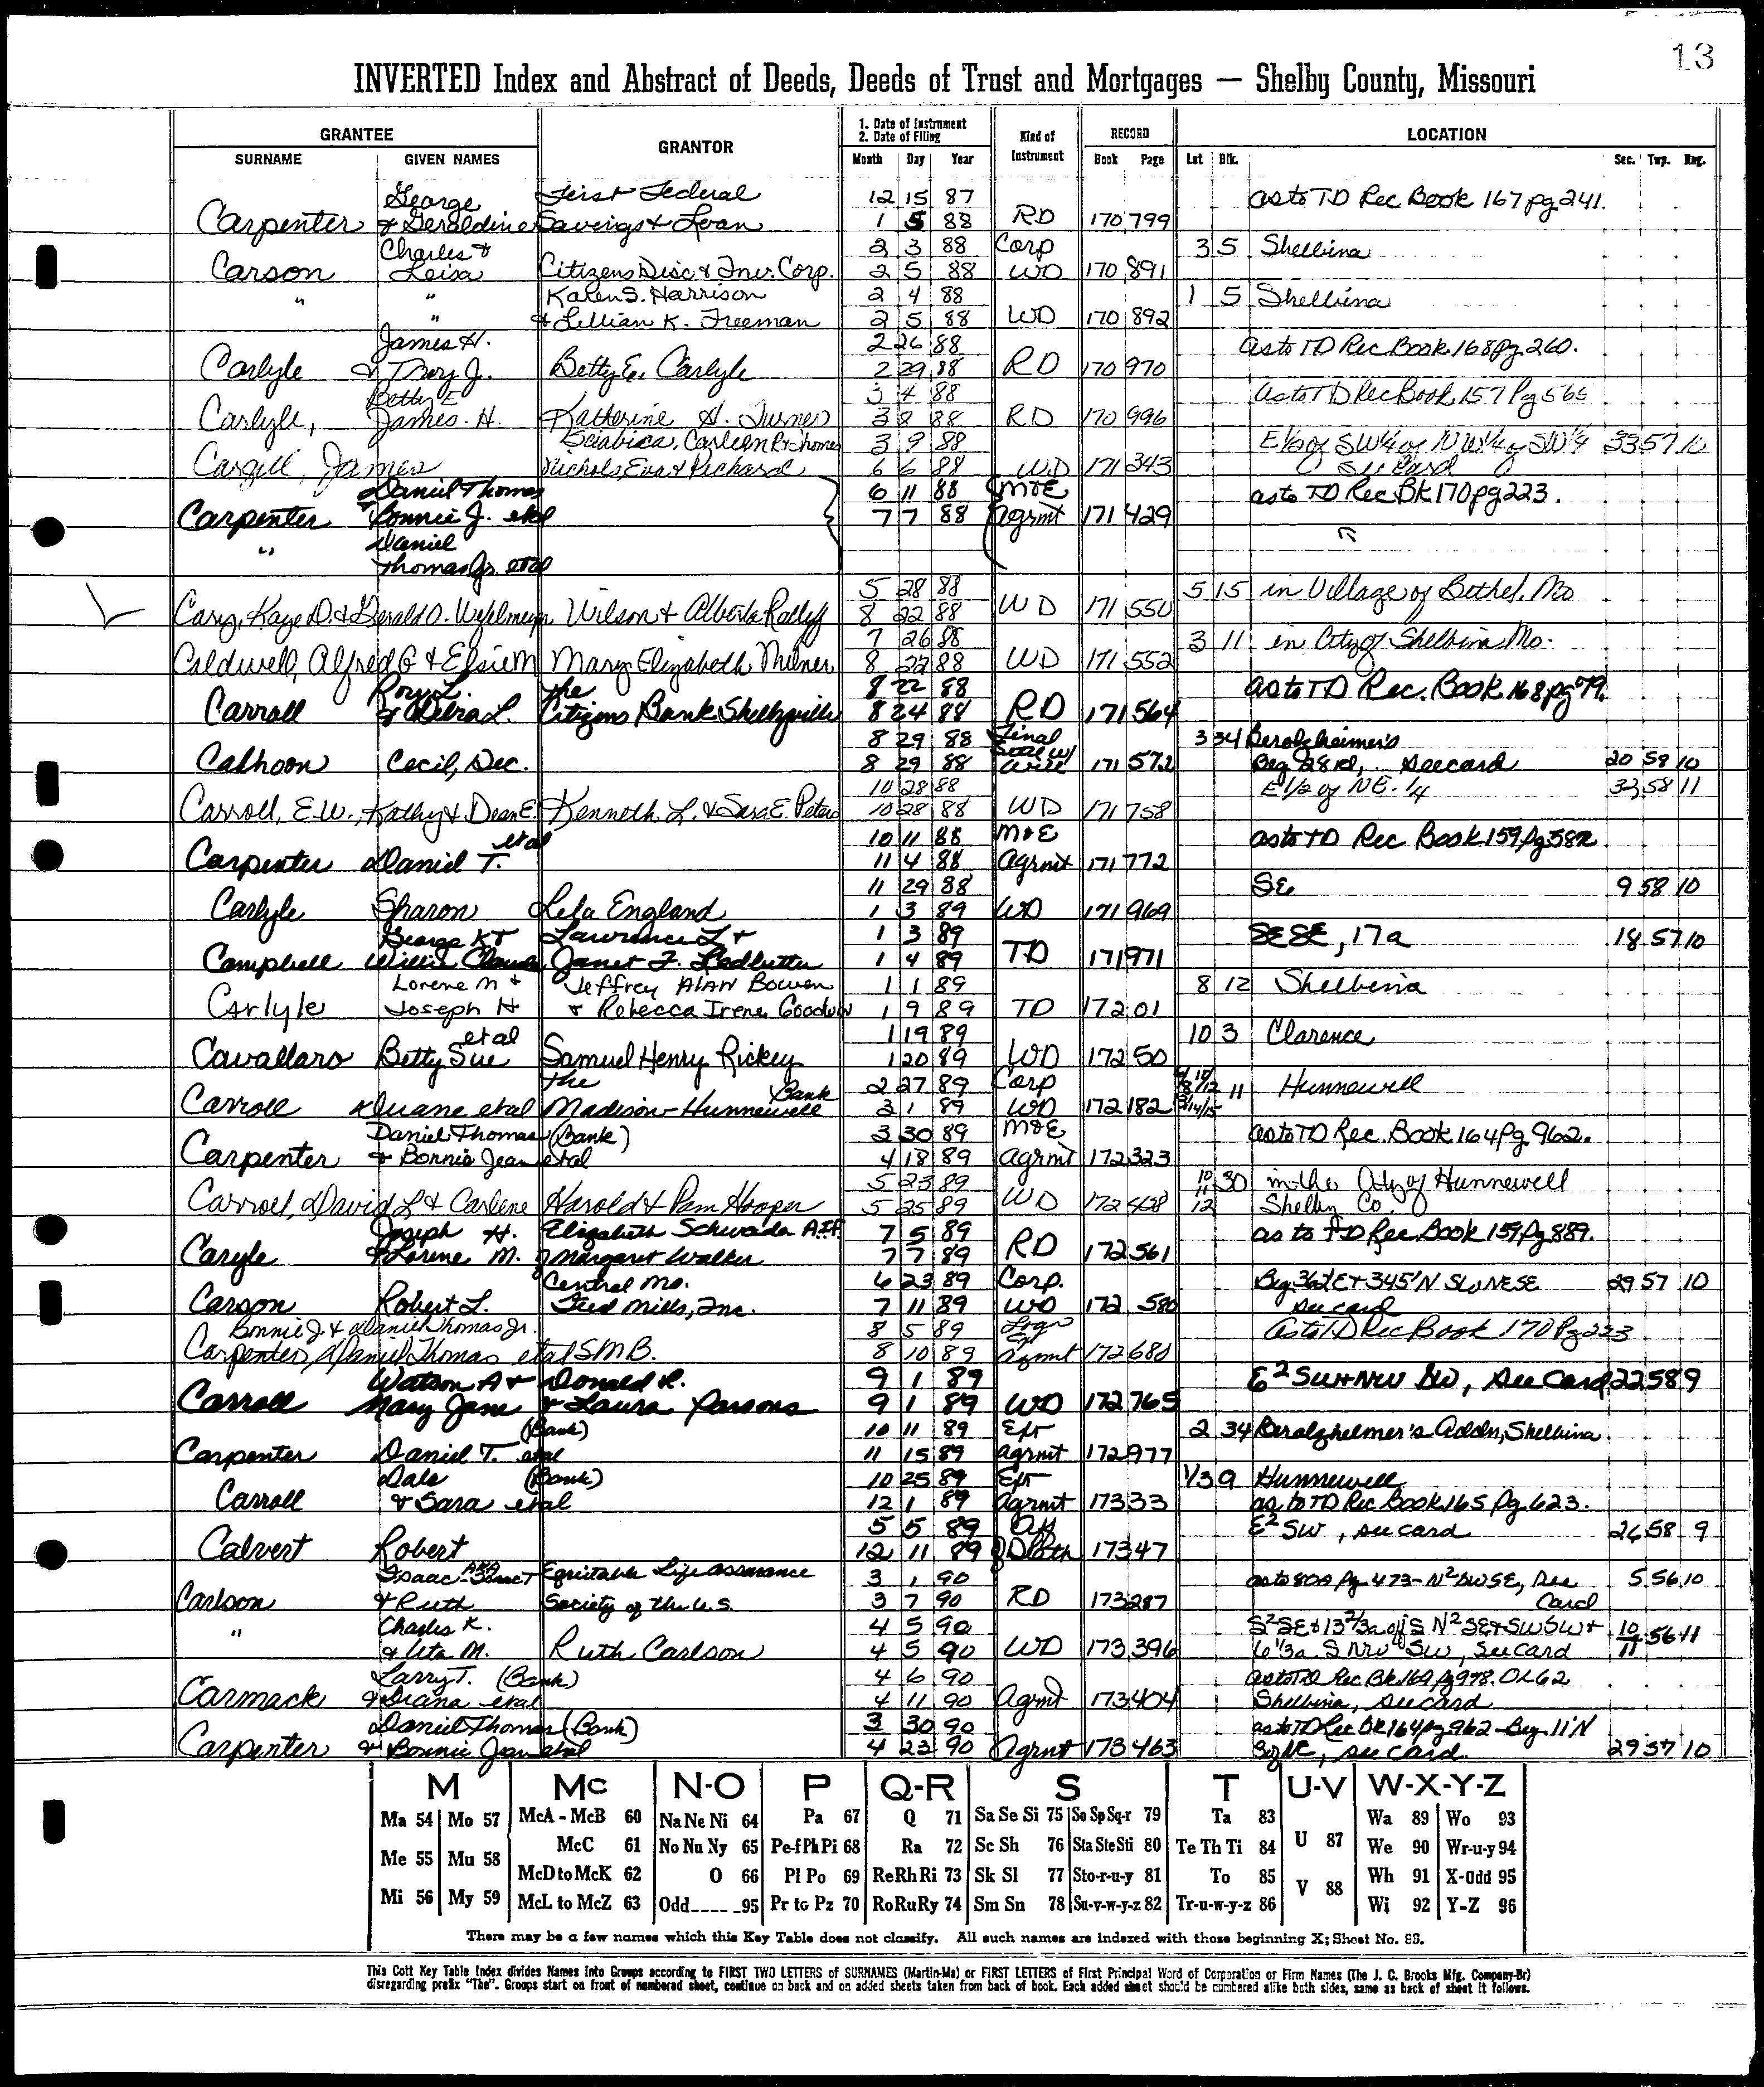 13
INVERTED Index and Abstract of Deeds, Deeds of Trust and Mortgages — Shelby County, Missouri
GRANTEE GRANTOR 1. Date of Instrument Kind of RECORD LOCATION
2. Date of Filing
SURNAME GIVEN NAMES Month Day Year Instrument Book Page Lot Blk. Sec. Twp. Rng.
George First Federal 12 15 87 as to TD Rec Book 167 pg 241.
Carpenter & Geraldine Savings & Loan 1 5 88 RD 170 799
Charles & 2 3 88 Corp 3 5 Shelbina
Carson Leisa Citizens Disc & Inv. Corp. 2 5 88 WD 170 891
" " Karen S. Harrison 2 4 88 1 5 Shelbina
" & Lillian K. Freeman 2 5 88 WD 170 892
James H. 2 26 88 as to TD Rec Book 168 pg 260.
Carlyle & Troy J. Betty E. Carlyle 2 29 88 RD 170 970
Betty E 3 4 88 as to TD Rec Book 157 Pg 565
Carlyle, James. H. Katherine A. Turner 3 8 88 RD 170 996
Carleen R & Thomas 3 9 88 E 1/2 of SW 1/4 of NW 1/4 of SW 1/4 33 57 10
Cargill, James Nichols, Eva & Richard 6 6 88 WD 171 343 See Card
Daniel Thomas 6 11 88 M&E as to TD Rec Bk 170 pg 223.
Carpenter & Bonnie J. etal 7 7 88 agrmt 171 429
" Daniel
Thomas Jr. etal
5 28 88 5 15 in Village of Bethel, Mo
Cary, Kaye D. & Gerald O. Wilson & Alberta Ratliff 8 22 88 WD 171 550
7 26 88 3 11 in City of Shelbina Mo.
Caldwell, Alfred G & Elsie M Mary Elizabeth Milner 8 22 88 WD 171 552
Rory L. The 8 22 88 as to TD Rec. Book 168 pg 79.
Carroll & Debra L. Citizens Bank Shelbyville 8 24 88 RD 171 564
8 29 88 Final 3 34 Berolzheimer's
Calhoon Cecil, Dec. 8 29 88 Will 171 572 Beg 28 rd, see card 20 58 10
10 28 88 E 1/2 of NE. 1/4 33 58 11
Carroll, E.W., Kathy & Dean E. Kenneth L. & Sara E. Peters 10 28 88 WD 171 758
etal 10 11 88 M&E as to TD Rec Book 159 Pg 582
Carpenter Daniel T. 11 4 88 agrmt 171 772
11 29 88 SE 9 58 10
Carlyle Sharon Lela England 1 3 89 WD 171 969
George K & Lawrence L & 1 3 89 SE SE, 17a 18 57 10
Campbell Willis Claude Janet F. Ledbetter 1 4 89 TD 171 971
Lorene M & Jeffrey Alan Bowen 1 1 89 8 12 Shelbina
Carlyle Joseph H & Rebecca Irene Goodwin 1 9 89 TD 172 01
etal 1 19 89 10 3 Clarence
Cavallaro Betty Sue Samuel Henry Rickey 1 20 89 WD 172 50
The Bank 2 27 89 Corp 11 Hunnewell
Carroll Duane etal Madison-Hunnewell 3 1 89 WD 172 182
Daniel Thomas (Bank) 3 30 89 M&E as to TD Rec. Book 164 Pg 962.
Carpenter & Bonnie Jean etal 4 18 89 Agrmt 172 323
5 23 89 10 11 30 in the City of Hunnewell
Carroll, David L & Carlene Harold & Pam Hooper 5 25 89 WD 172 428 12 Shelby Co.
Joseph H. Elizabeth Schwada A.I.F. 7 5 89 as to TD Rec Book 159 Pg 889.
Caryle & Lorene M. of Margaret Walker 7 7 89 RD 172 561
Central Mo. 6 23 89 Corp. Beg 362' E & 345' N SW NE SE 29 57 10
Carson Robert L. Feed Mills, Inc. 7 11 89 WD 172 580 see card
Bonnie J. & Daniel Thomas Jr. 8 5 89 as to TD Rec Book 170 Pg 223
Carpenter, Daniel Thomas etal S.M.B. 8 10 89 Agmt 172 680
Watson A & Donald R. 9 1 89 E² SW & NW SW, See Card 22 58 9
Carroll Mary Jane & Laura Parsons 9 1 89 WD 172 765
(Bank) 10 11 89 Ext 2 34 Berolzheimer's Addn, Shelbina
Carpenter Daniel T. etal 11 15 89 agrmt 172 977
Dale (Bank) 10 25 89 Ext 1/3 9 Hunnewell
Carroll & Sara etal 12 1 89 Agrmt 173 33 as to TD Rec Book 165 Pg 623.
5 5 89 E² SW, see card 26 58 9
Calvert Robert 12 11 89 Death 173 47
Isaac AKA Isaac T Equitable Life Assurance 3 1 90 as to 80A Pg 473 - N² SW SE, See 5 56 10
Carlson & Ruth Society of the U.S. 3 7 90 RD 173 287 Card
" Charles K. 4 5 90 S² SE & 13 2/3a of S N² SE & SW SW & 10 56 11
& Leta M. Ruth Carlson 4 5 90 WD 173 396 6 1/3a S NW SW, see card 11
Larry T. (Bank) 4 6 90 as to TD Rec Bk 169 Pg 978. OL 62
Carmack & Diana etal 4 11 90 Agmt 173 404 Shelbina, see card
Daniel Thomas (Bank) 3 30 90 as to TD Rec Bk 164 pg 962 - Beg. 11' N
Carpenter & Bonnie Jean etal 4 23 90 Agrmt 173 463 see card 29 57 10
M Mc N-O P Q-R S T U-V W-X-Y-Z
Ma 54 Mo 57 McA - McB 60 Na Ne Ni 64 Pa 67 Q 71 Sa Se Si 75 So Sp Sq-r 79 Ta 83 U 87 Wa 89 Wo 93
McC 61 No Nu Ny 65 Pe-f Ph Pi 68 Ra 72 Sc Sh 76 Sta Ste Sti 80 Te Th Ti 84 We 90 Wr-u-y 94
Me 55 Mu 58 McD to McK 62 O 66 Pl Po 69 Re Rh Ri 73 Sk Sl 77 Sto-r-u-y 81 To 85 V 88 Wh 91 X-Odd 95
Mi 56 My 59 McL to McZ 63 Odd---- -95 Pr to Pz 70 Ro Ru Ry 74 Sm Sn 78 Su-v-w-y-z 82 Tr-u-w-y-z 86 Wi 92 Y-Z 96
There may be a few names which this Key Table does not classify. All such names are indexed with those beginning X; Sheet No. 95.
This Cott Key Table Index divides Names Into Groups according to FIRST TWO LETTERS of SURNAMES (Martin-Ma) or FIRST LETTERS of First Principal Word of Corporation or Firm Names (The J. C. Brooks Mfg. Company-Br)
disregarding prefix "The". Groups start on front of numbered sheet, continue on back and on added sheets taken from back of book. Each added sheet should be numbered alike both sides, same as back of sheet it follows.